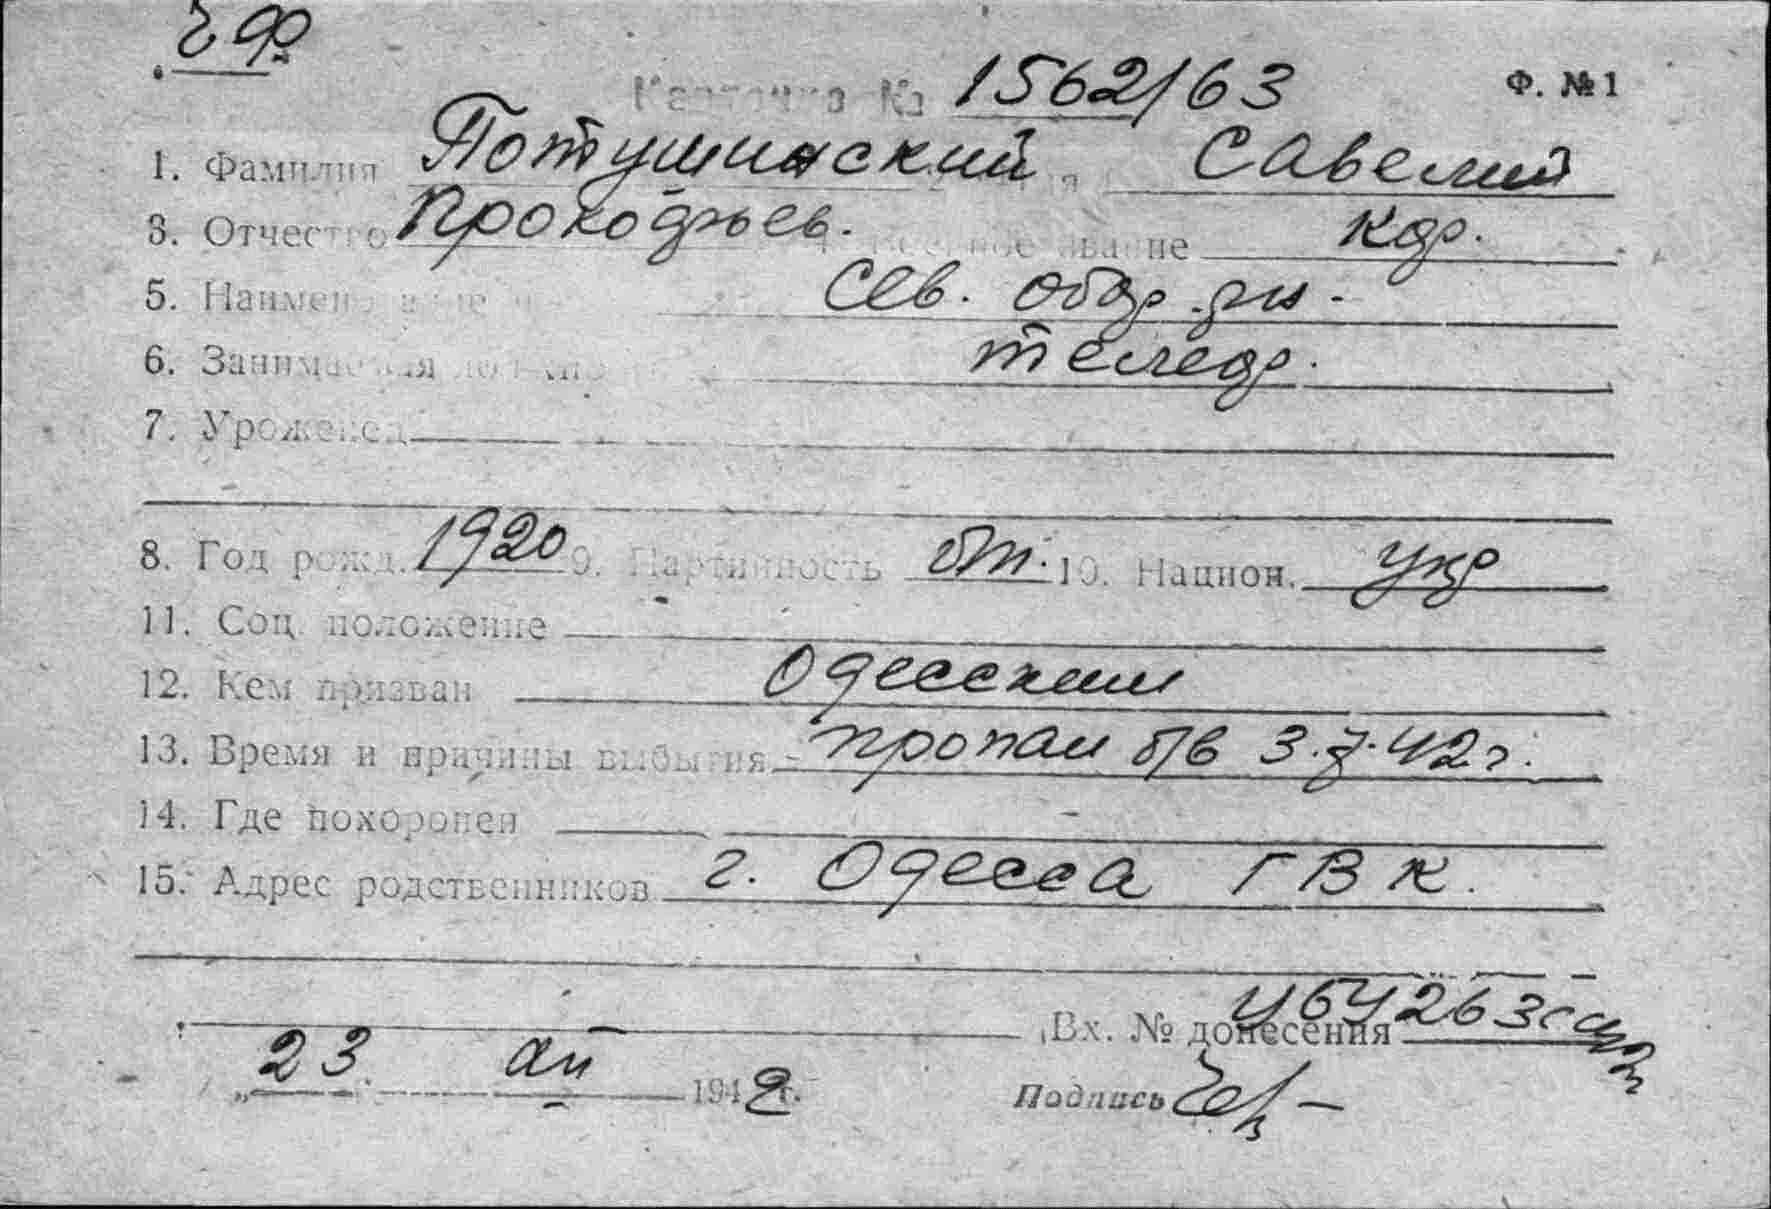 ЧФ
Карточка № 1562/63 Ф. №1
1. Фамилия Потушинский Савелий
3. Отчество Прокофьев. звание кдр.
5. Наимено Сев. обор. рн.
6. Занимаемая должнос телегр.
7. Уроженец
8. Год рожд. 1920 9. Партийность б/п. 10. Национ. укр
11. Соц. положение
12. Кем призван Одесским
13. Время и причины выбытия - пропал б/в 3.7.42 г.
14. Где похоронен
15. Адрес родственников г. Одесса ГВК.
Вх. № донесения
23 1942 г. Подпись